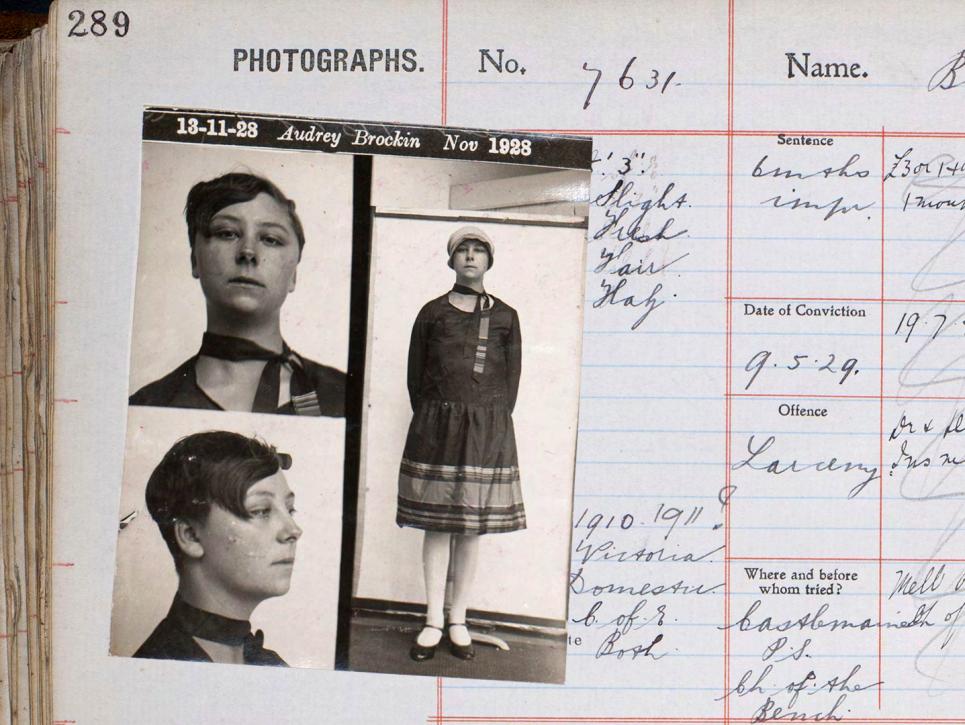 289
PHOTOGRAPHS.
No. 7631.
Name. B
13-11-28 Audrey Brockin Nov 1928
3".
Slight.
Fresh.
Fair.
Haz.
1910. 1911 ?
Victoria.
Domestic.
C. of E.
te Both.
Sentence
6 mths
impr.
£3 or 14
1 mon
Date of Conviction
9.5.29.
19.7.
Offence
Larceny
Dr &
Ins
Where and before
whom tried?
Castlemaine
P.S.
Ch. of the
Bench.
Melb
Ch of